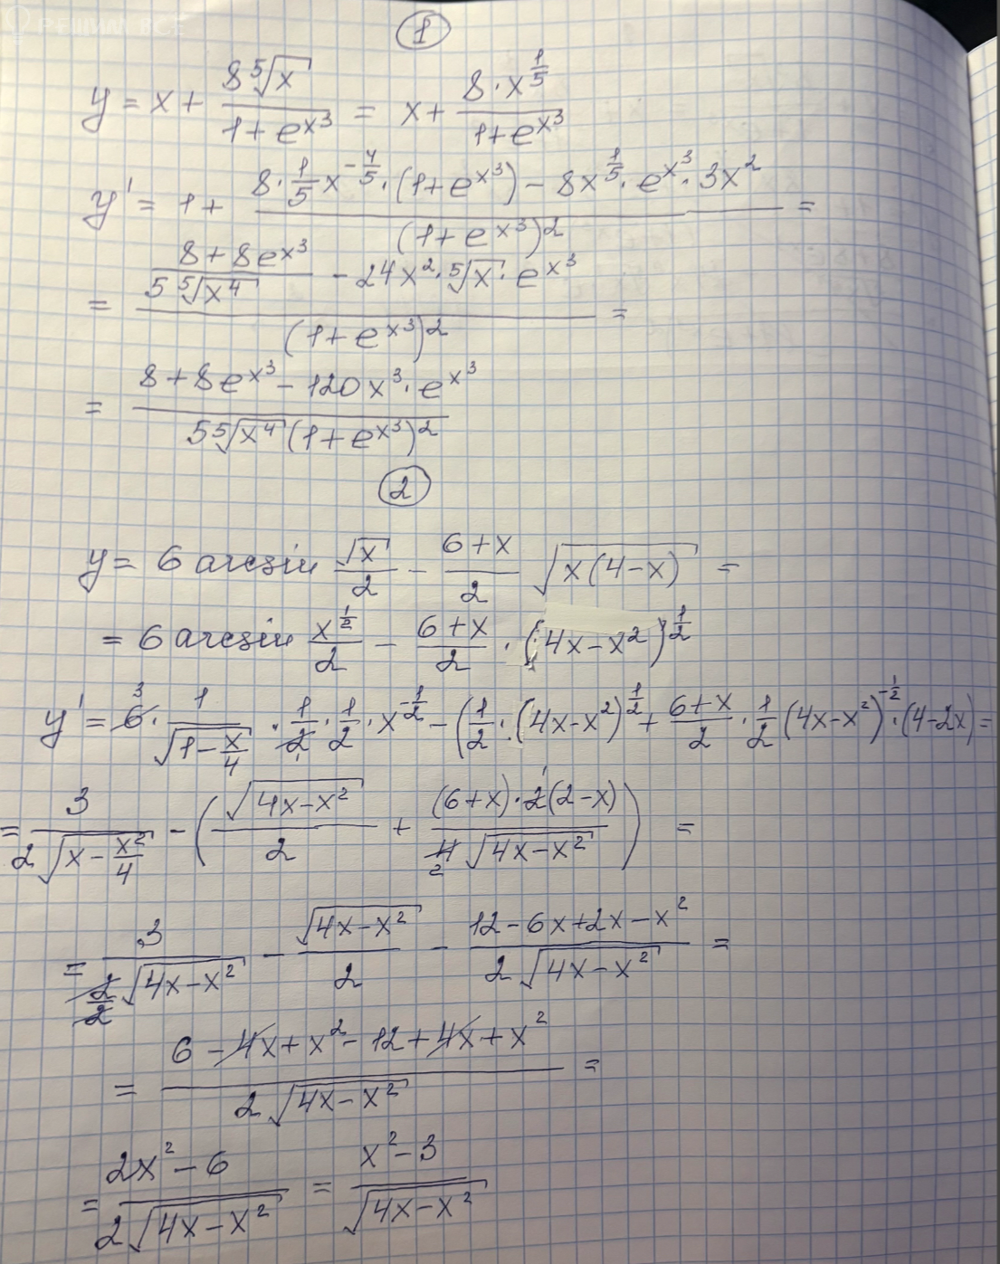 РЕШИМ ВСЕ
1
y = x + 8⁵√x / (1 + e^(x³)) = x + 8 · x^(1/5) / (1 + e^(x³))
y' = 1 + (8 · 1/5 x^(-4/5) · (1 + e^(x³)) - 8x^(1/5) · e^(x³) · 3x²) / (1 + e^(x³))² =
= ((8 + 8e^(x³)) / (5 ⁵√x⁴) - 24x² · ⁵√x · e^(x³)) / (1 + e^(x³))² =
= (8 + 8e^(x³) - 120x³ · e^(x³)) / (5 ⁵√x⁴ (1 + e^(x³))²)
2
y = 6 arcsin √x / 2 - (6 + x) / 2 √(x(4 - x)) =
= 6 arcsin x^(1/2) / 2 - (6 + x) / 2 · (4x - x²)^(1/2)
y' = 6 3 · 1 / √(1 - x/4) · 1/2 · 1/2 · x^(-1/2) - (1/2 · (4x - x²)^(1/2) + (6 + x) / 2 · 1/2 (4x - x²)^(-1/2) · (4 - 2x) =
= 3 / (2 √(x - x²/4)) - (√(4x - x²) / 2 + (6 + x) · 2 1 (2 - x) / (4 2 √(4x - x²))) =
= 3 / (2/2 √(4x - x²)) - √(4x - x²) / 2 - (12 - 6x + 2x - x²) / (2 √(4x - x²)) =
= (6 - 4x + x² - 12 + 4x + x²) / (2 √(4x - x²)) =
= (2x² - 6) / (2 √(4x - x²)) = (x² - 3) / √(4x - x²)